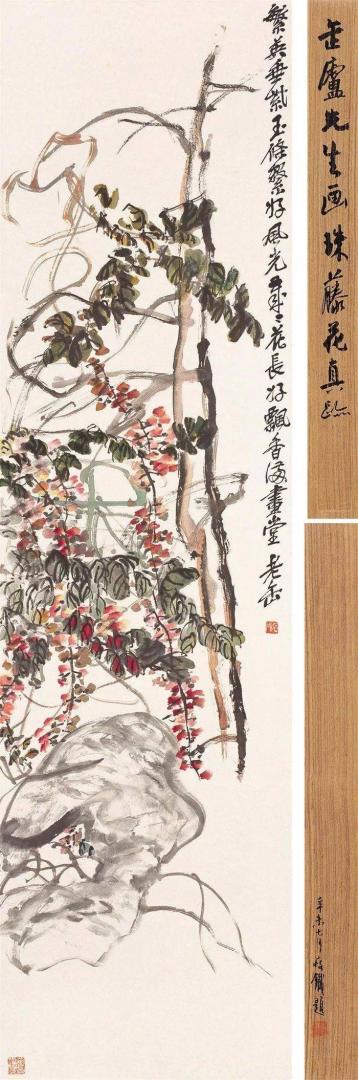 繁英垂紫玉條繫好風光歲〻花長好飄香滿畫堂 老缶
缶廬先生画珠藤花真迹
辛未七月
題